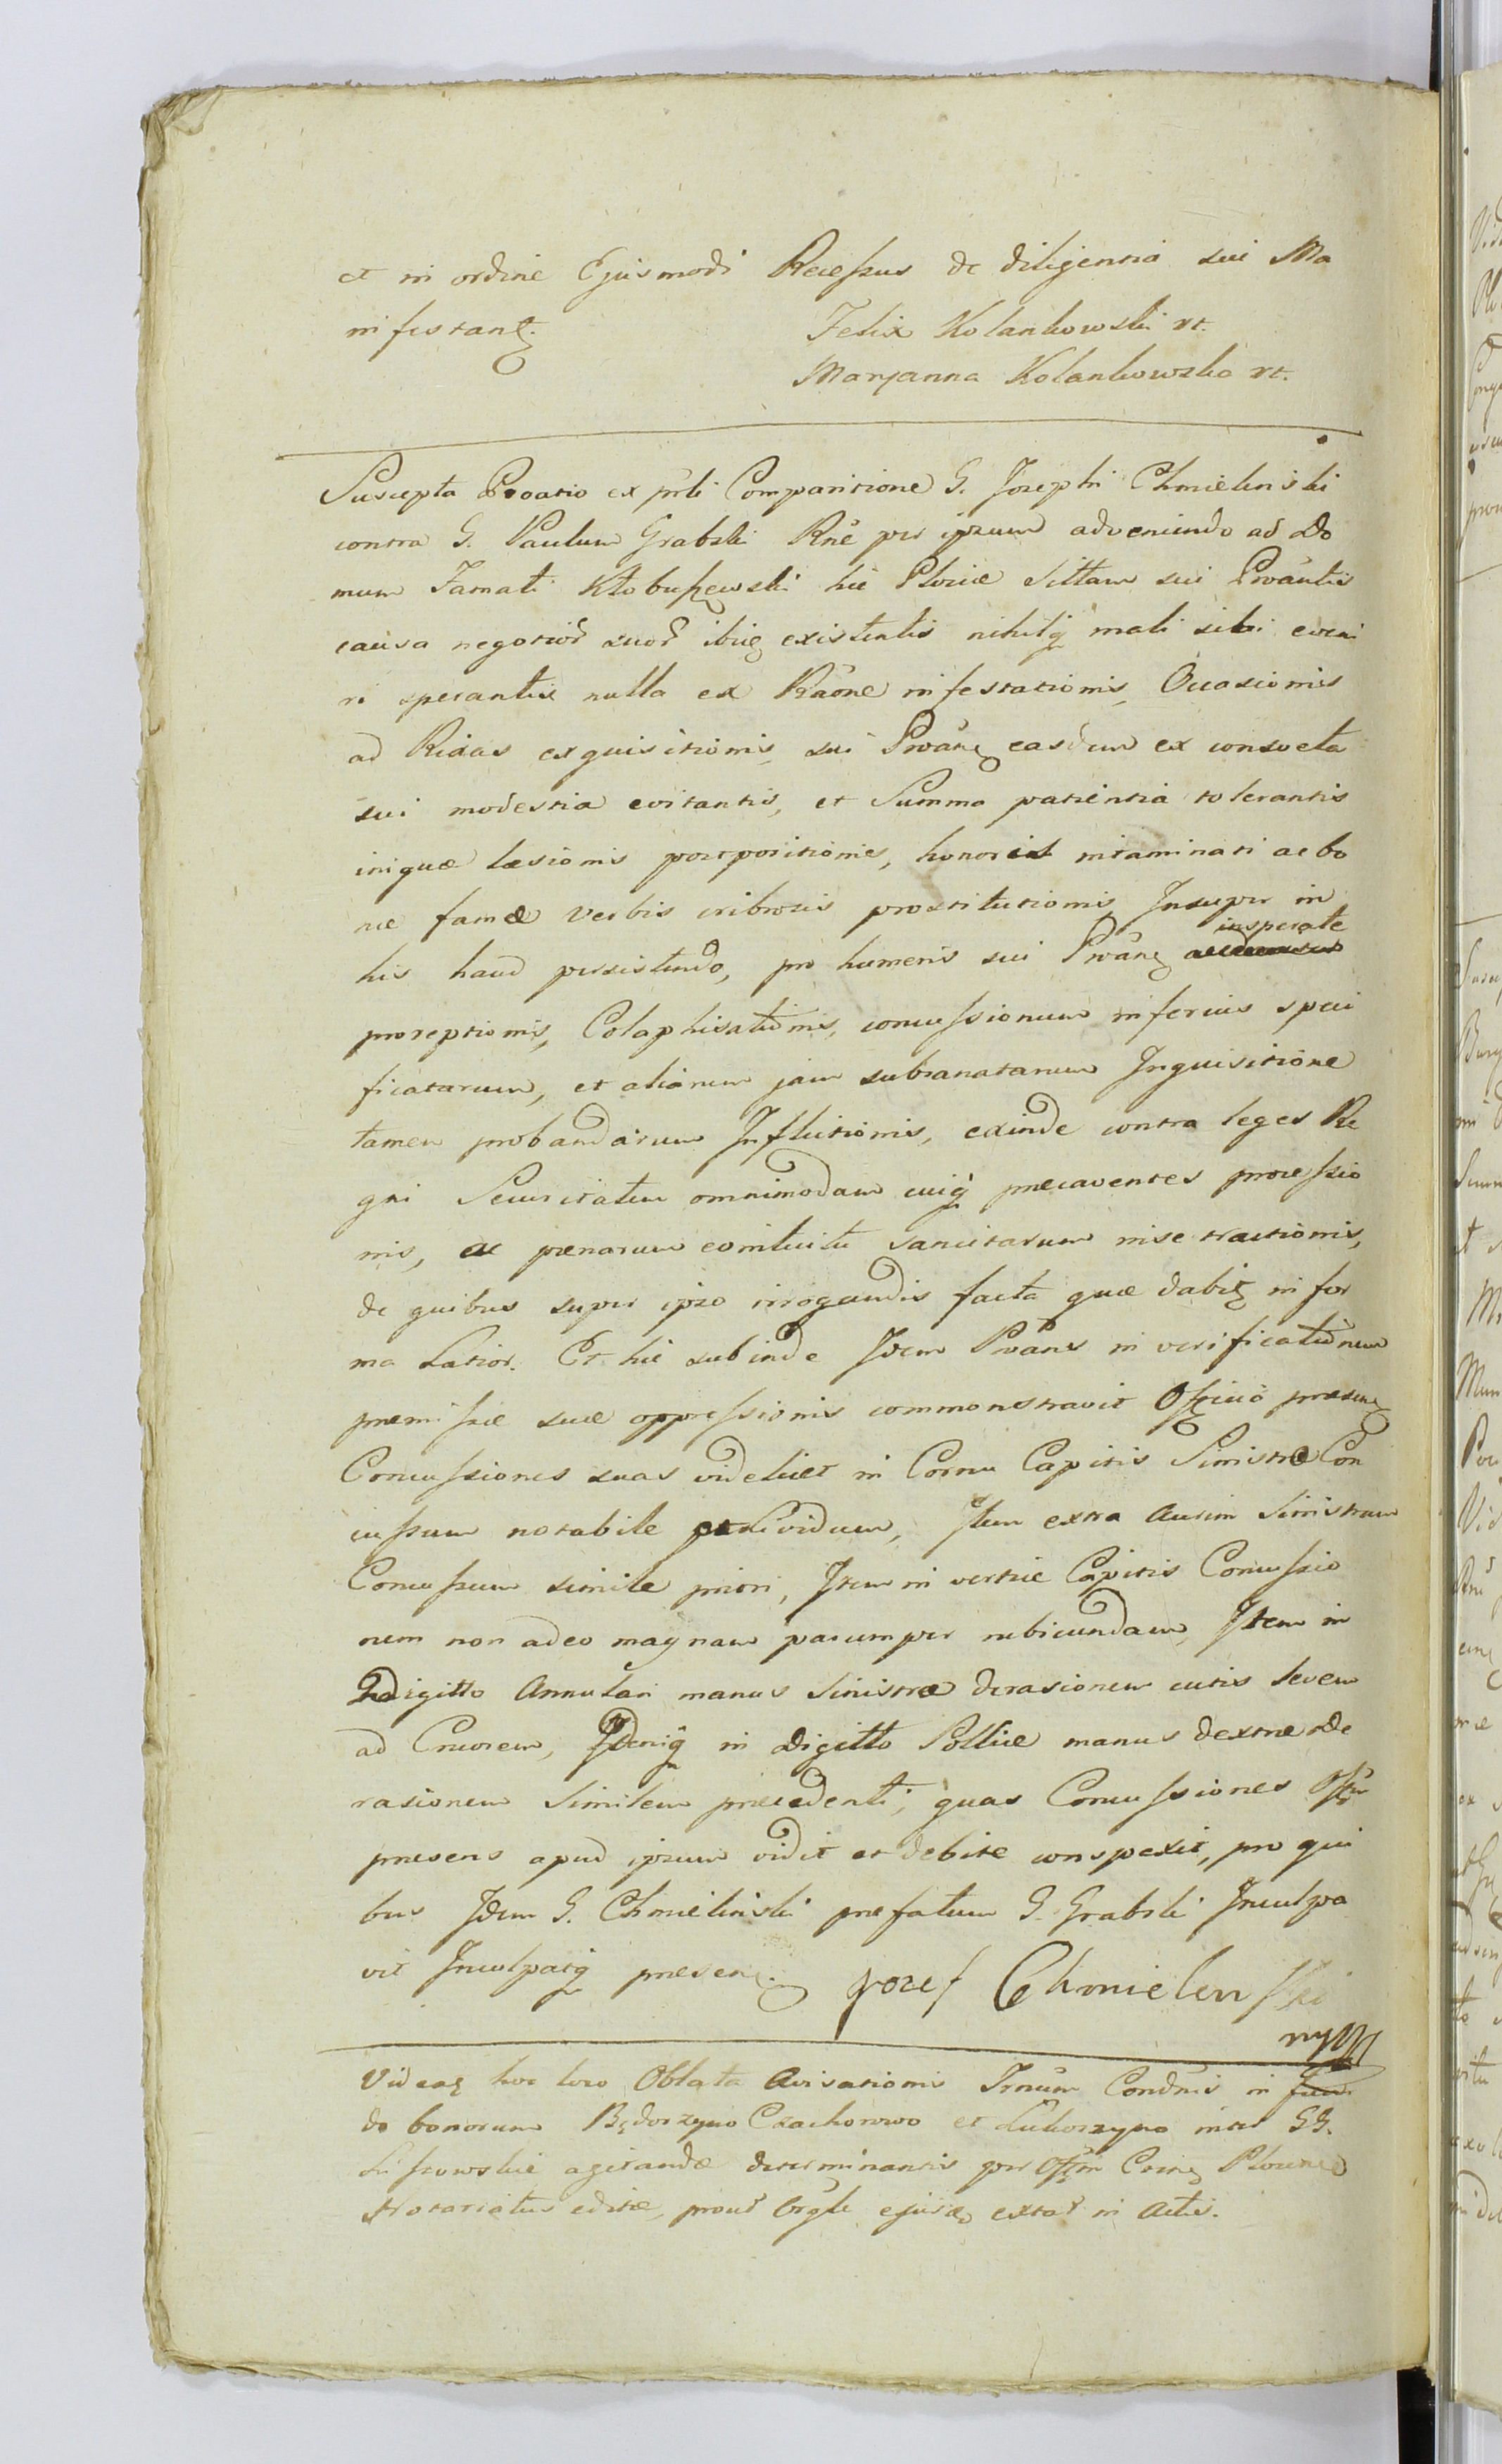 et in ordine Ejusmodi Recessus de diligentia sui Ma
nifestant.
Felix Kolankowski rt.
Maryanna Kolankowska rt.
Suscepta Protio ex prli Comparitione G. Josephi Chmielinski
contra G. Paulum Grabski Rne per ipsum adveniendo ad Do
mum Famati Kłobuszewski hic Plociæ Sittam sui Proantis
causa negotior suor ibiq existentis nihilq mali sibi eveni
ri sperantis nulla ex Raone infestationis, Occasionis
ad Rixas exquisitionis, sui Proan easdem ex consveta
sui modestia evitantis, et Summa patientia tolerantis
iniquæ læsionis postpositionis, honoris intaminati ac bo
næ famæ verbis cribrosis prostitutionis, Insuper in
his haud persistendo, pro humeris sui Proan insperate
proreptionis, Colaphisationis, concussionum inferius speci
ficatarum, et aliarum jam subsanatarum Inquisitione
tamen probandarum Inflictionis, exinde contra leges Re
gni Securitatem omnimodam cuiq præcaventes processio
nis, ac pœnarum eointuitu sancitarum in se tractionis,
de quibus super ipso irrogandis facta quæ dabit in for
ma Latior. Et hic subinde Idem Proans in verificationem
præmissæ suæ oppressionis commonstravit Officio præsen
Concussiones suas videlicet in Cornu Capitis Sinistro Con
cussum notabile Lividum, Item extra Aurim Sinistram
Concussum simile priori, Item in vertice Capitis Concussio
nem non adeo magnam parumper rubicundam, Item in
Digitto Annulari manus Sinistræ derasionem cutis levem
ad Cruorem, Deniq in Digitto Pollice manus dextræ de
rasionem Similem præcedenti, quas Concussiones Offm
præsens apud ipsum vidit et debite conspexit, pro qui
bus Idem G. Chmielinski præfatum G. Grabski Inculpa
vit Inculpatq præsen.
Jozef Chmielenski
mp
Videaq hoc loco Oblata Avisationis Trnum Condnis in fun
do bonorum Będorzyno Czachorowo et Lukoszyno inter GG.
Lissowskie agitandæ determinantis per Offm Plocen
Notariatus editæ, prout Orgle ejusd extat in Actis.